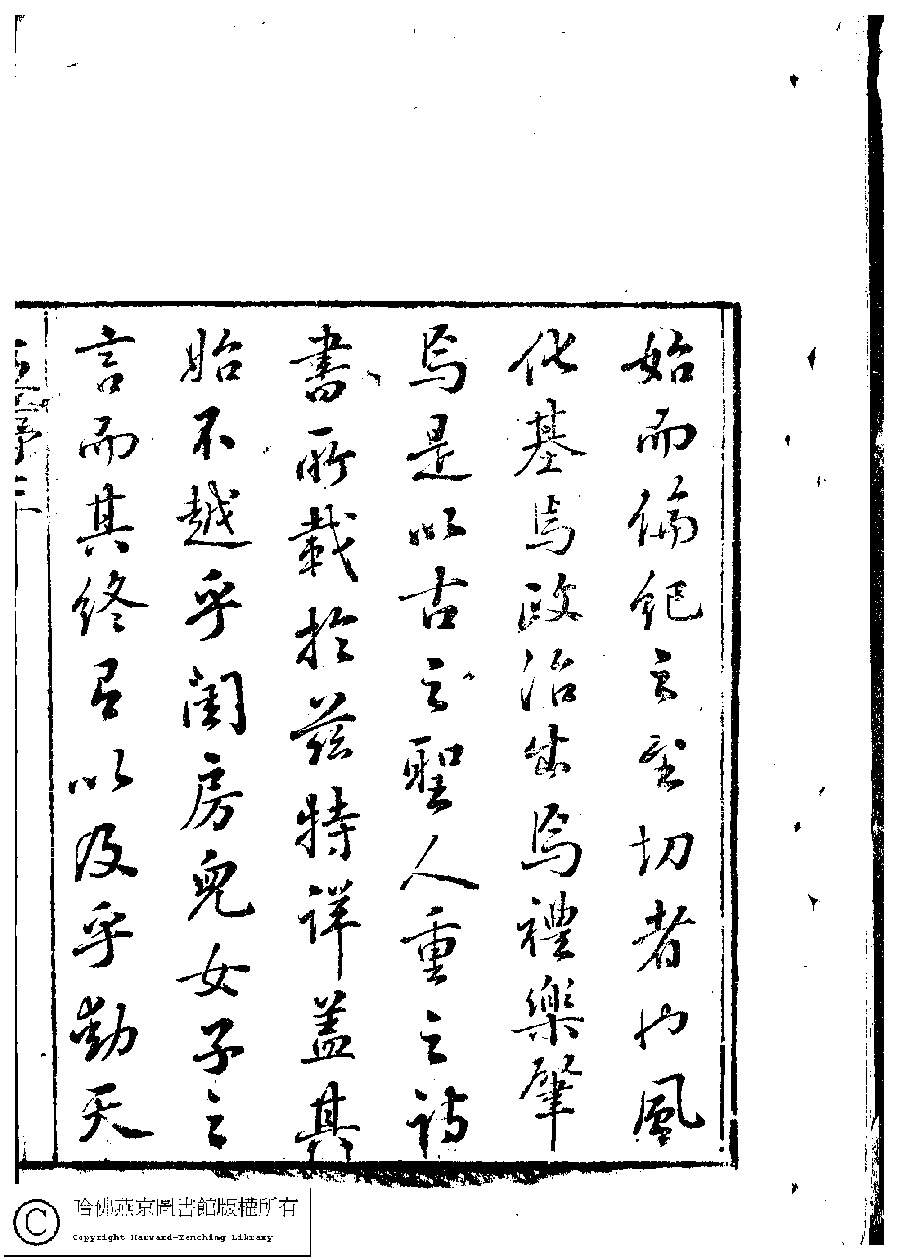 始而倫紀之至切者也風
化基焉政治出焉禮樂肇
焉是以古之聖人重之詩
書所載於茲特詳蓋其
始不越乎閨房兒女子之
言而其終有以及乎動天
序三
哈佛燕京圖書館版權所有
Copyright Harvard-Yenching Library